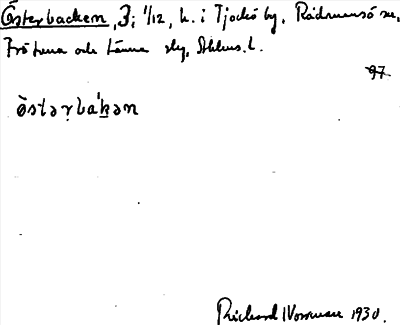 Österbacken, 3; 1/12, h. i Tjockö by. Rådmansö sn,
Frötuna och Länna skg, Sthlms l.
97
östərba'kən
Richard 1930.